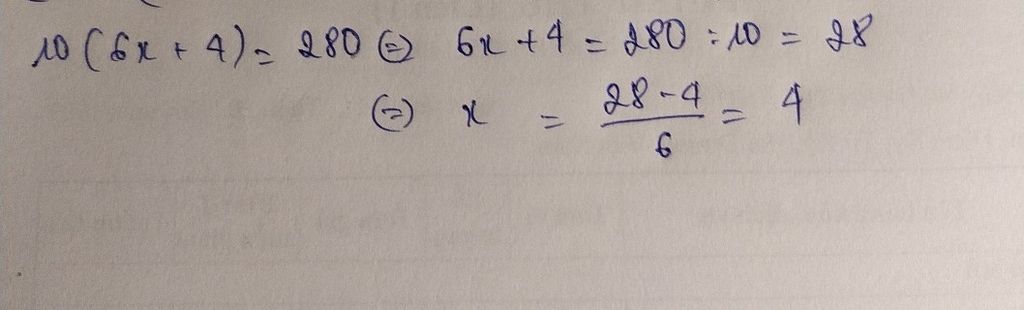 10(6x + 4) = 280 ⇔ 6x + 4 = 280 : 10 = 28
⇔ x = \frac{28-4}{6} = 4